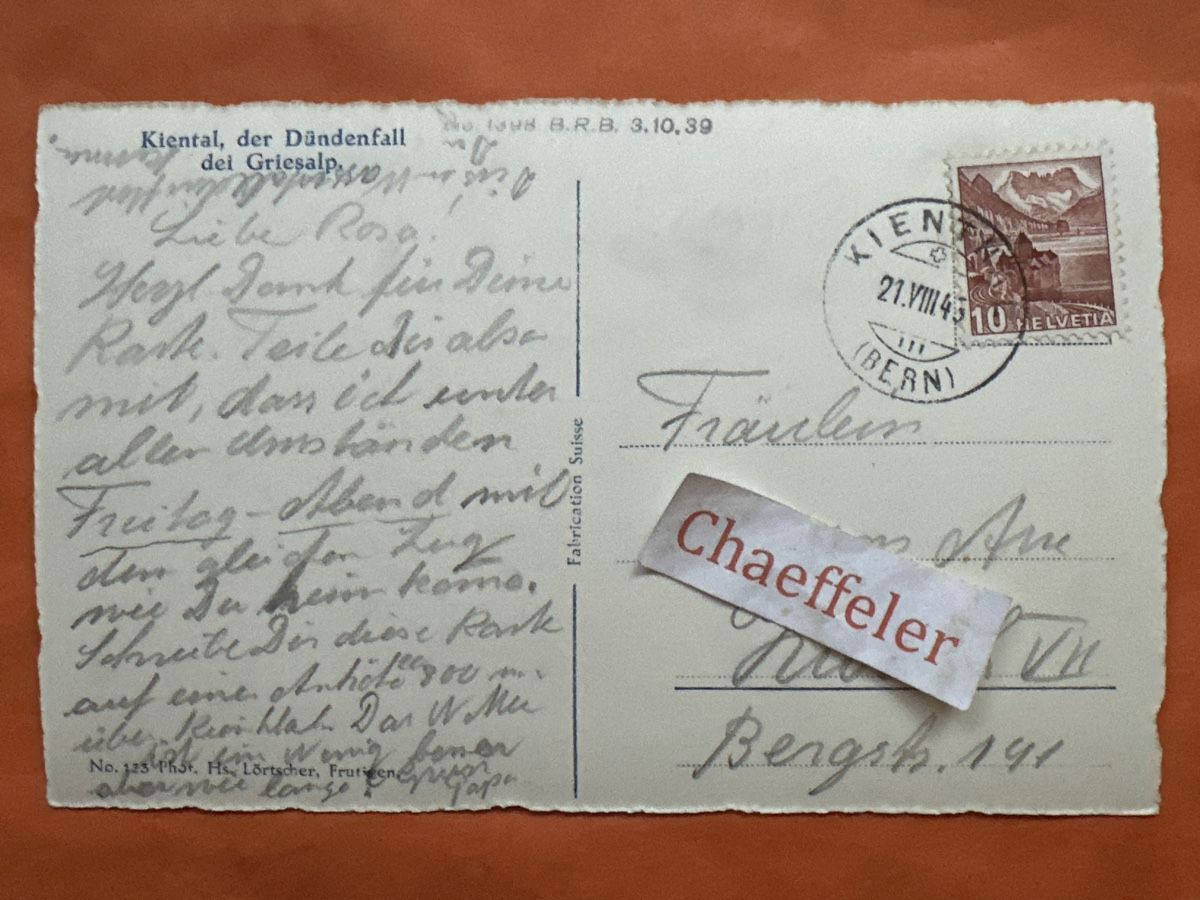 Kiental, der Dündenfall
dei Griesalp.
No. 1398 B.R.B. 3.10.39
Liebe Rosa!
Herzl Dank für Deine
Karte. Teile Dir also
mit, dass ich unter
allen Umständen
Freitag-Abend mit
dem gleichen Zug
wie Du heim komme.
Schreibe Dir diese Karte
auf einer Anhöhe 800 m.
über Das
ist ein wenig besser
aber wie lange?
Papa
No. 123 Phot. Hs. Lörtscher, Frutigen.
Fabrication Suisse
KIENTAL
21.VIII.45
III
(BERN)
10 HELVETIA
Fräulein
Chaeffeler
VII
Bergstr. 141